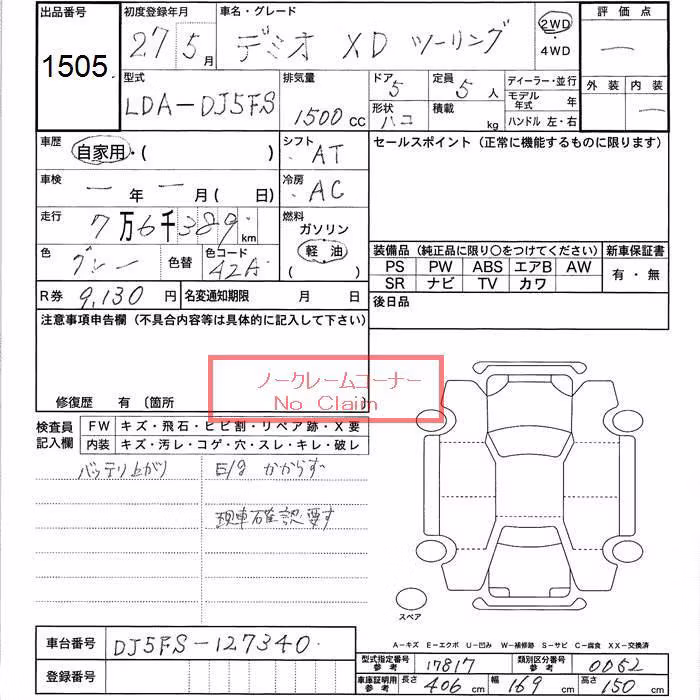 出品番号 初度登録年月 車名・グレード 評価点
1505 27 5月 デミオ XD ツーリング 2WD ・4WD —
型式 排気量 ドア 5 定員 5人 ディーラー・並行 外装 内装
LDA-DJ5FS 1500cc 形状 ハコ 積載 kg モデル年式 年 —
ハンドル 左・右
車歴 自家用・( ) シフト AT セールスポイント (正常に機能するものに限ります)
車検 —年—月( 日) 冷房 AC
走行 7万6千389km 燃料 ガソリン
軽油
( )
色 グレー 色替 色コード 42A
装備品 (純正品に限り〇をつけてください) 新車保証書
PS PW ABS エアB AW 有・無
SR ナビ TV カワ
R券 9,130円 名変通知期限 月 日 後日品
注意事項申告欄 (不具合内容等は具体的に記入して下さい)
ノークレームコーナー
No Claim
修復歴 有 〔箇所
検査員記入欄 FW キズ・飛石・ヒビ割・リペア跡・X要
内装 キズ・汚レ・コゲ・穴・スレ・キレ・破レ
バッテリ上がり E/g かからず
現車確認要す
スペア
A-キズ E-エクボ U-凹み W-補修跡 S-サビ C-腐食 XX-交換済
車台番号 DJ5FS-127340
型式指定番号 参考 17817 類別区分番号 参考 0052
登録番号
車庫証明用 参考 長さ 406cm 幅 169cm 高さ 150cm